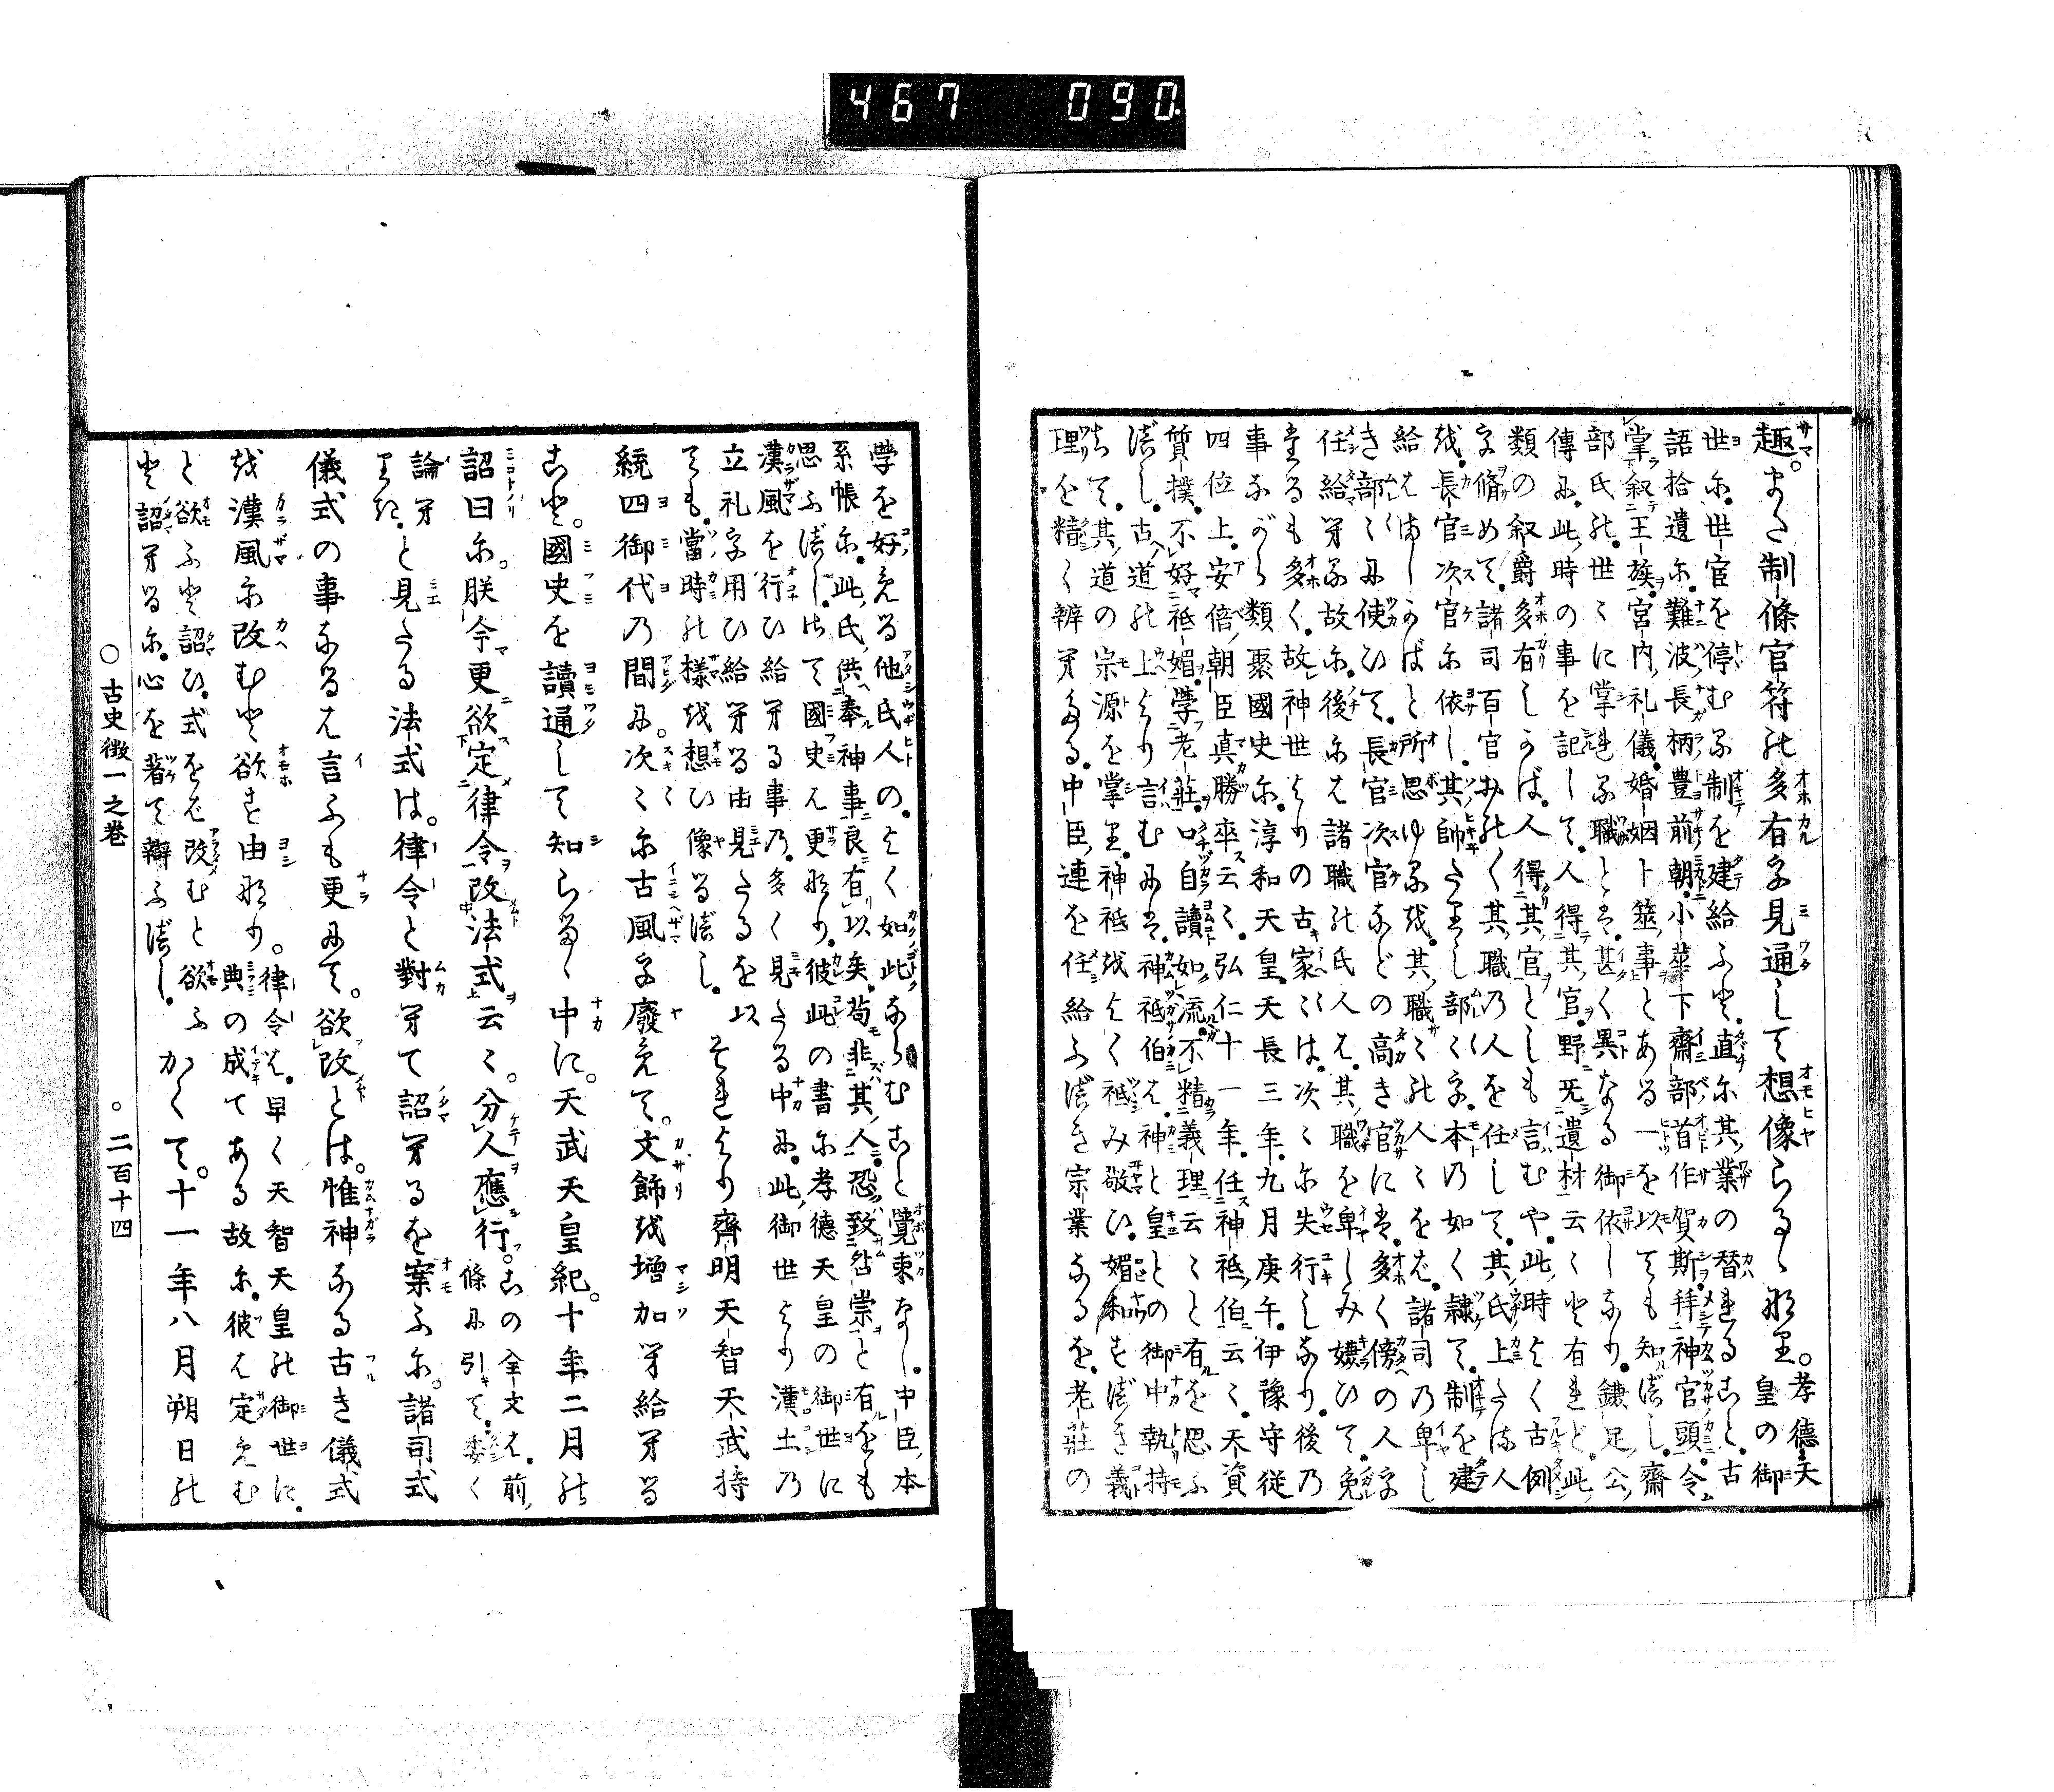 467 090
趣。また制條官符の多有を見通して想像らるゝなり。孝德天皇の御
世に世官を停むる制を建給ふと直に其業の替れること古
語拾遺に難波長柄豊前朝小華下齋部首作賀斯拜神官頭令
掌叙王族宮内礼儀婚姻卜筮事とある一を以ても知べし齋
部氏の世々に掌れる職とは甚く異なる御依しなり鎌足公
傳に此時の事を記して人得其官野无遺材云々と有れど此
類の叙爵多有しかば人得其官としも言むや此時よく古例
を脩めて諸司百官みのく其職乃人を任して其氏上たる人
を長官次官に依し其帥たりし部々を本乃如く隷て制を建
給はましかばと所思ゆるを其職々の人々をば諸司乃卑し
き部々に使ひて長官次官などの高き官には多く傍の人を
任給へる故に後には諸職の氏人は其職を卑しみ嫌ひて免
たるも多く故神世よりの古家々は次々に失行しなり後乃
事ながら類聚國史に淳和天皇天長三年九月庚午伊豫守従
四位上安倍朝臣真勝卒云々弘仁十一年任神祇伯云々天資
質撲不好祇媚學老莊口自讀如流不精義理云々と有を思ふ
べし古道の上より言むには神祇伯は神と皇との御中執持
ちて其道の宗源を掌り神祇をよく祗み敬ひ媚和すべき義
理を精く辨へたる中臣連を任給ふべき宗業なるを老莊の
學を好める他氏人のよく如此ならむこと覺束なし中臣本
系帳に此氏供奉神事良有以矣苟非其人恐致咎崇と有をも
思ふべしさて國史は更なり彼此の書に孝德天皇の御世に
漢風を行ひ給へる事乃多く見たる中に此御世より漢土乃
立礼を用ひ給へる由見たるを以
ても當時の樣を想ひ像るべし。それより齊明天智天武持
統四御代乃間に次々に古風を廢めて。文飾を増加へ給へる
こと。國史を讀通して知らるゝ中に。天武天皇紀。十年二月の
詔曰に。朕今更欲定律令改法式云々。分人應行。この全文は前條に引て委く
論へりき と見たる法式は。律令と對へて詔へるを案ふに。諸司式
儀式の事なるは言ふも更にて。欲改とは。惟神なる古き儀式
を漢風に改むと欲す由なり。律令は早く天智天皇の御世に
典の成てある故に彼は定めむ
と欲ふと詔ひ式をば改むと欲ふ
と詔へるに心を著て辯ふべし。かくて。十一年八月朔日の
○古史徴一之卷
○二百十四